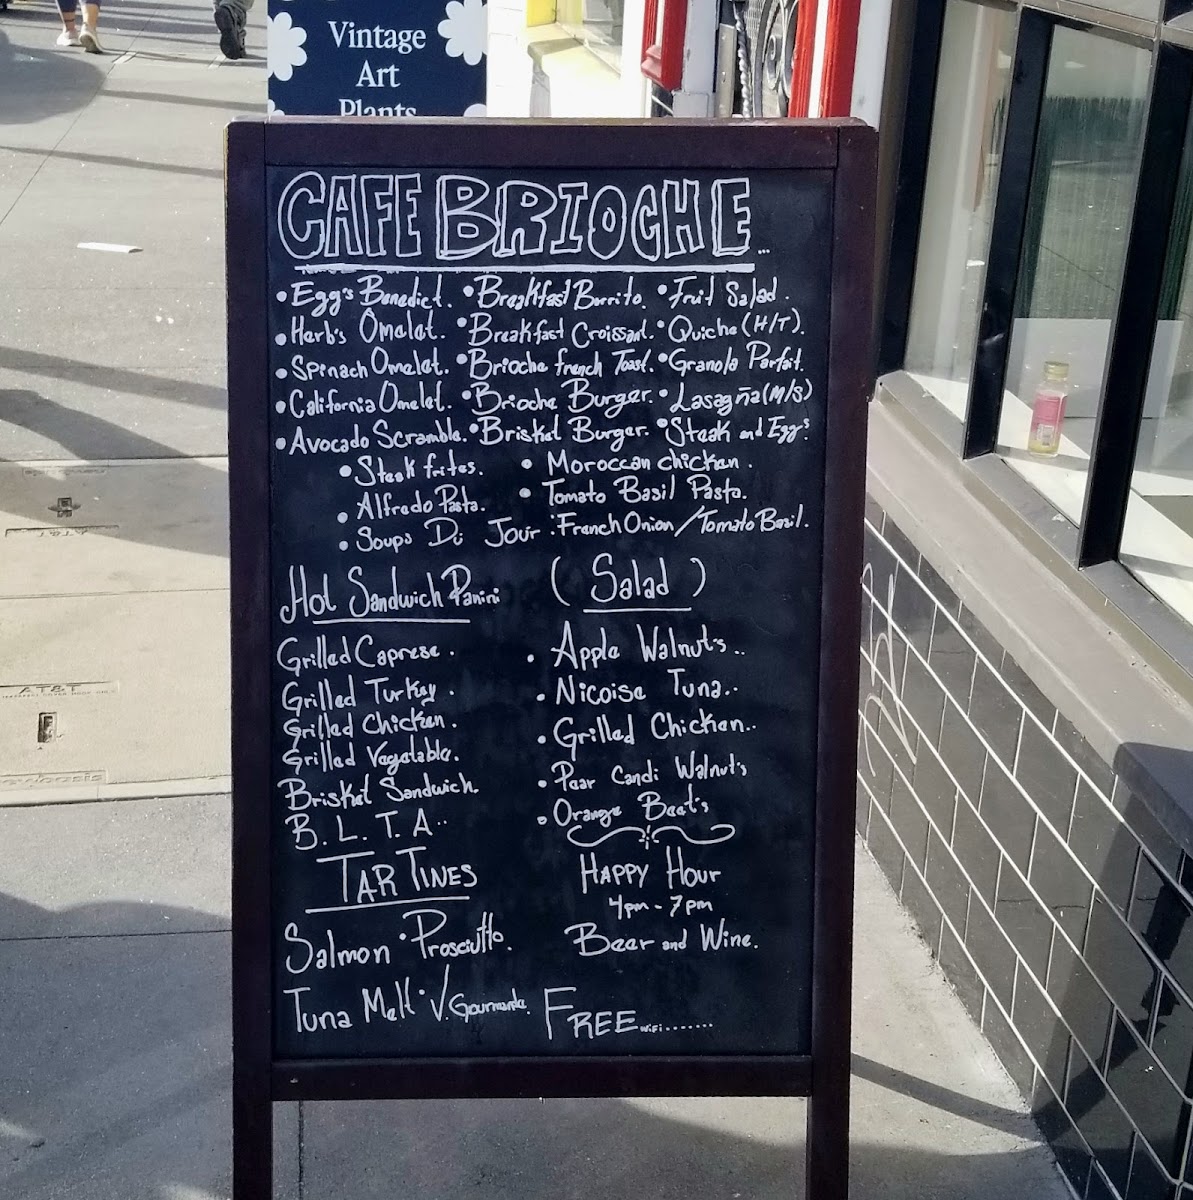 Vintage
Art
Plants
CAFE BRIOCHE...
• Egg's Benedict. • Breakfast Borrito. • Fruit Salad.
• Herb's Omelet. • Breakfast Croissant. • Quiche (H/T).
• Spinach Omelet. • Brioche french Toast. • Granola Parfait.
• California Omelet. • Brioche Burger. • Lasagña (M/S)
• Avocado Scramble. • Brisket Burger. • Steak and Eggs
• Steak frites. • Moroccan chicken.
• Alfredo Pasta. • Tomato Basil Pasta.
• Soups Du Jour : French Onion / Tomato Basil.
Hot Sandwich Panini
Grilled Caprese.
Grilled Turkey.
Grilled Chicken.
Grilled Vegetable.
Brisket Sandwich.
B. L. T. A..
TARTINES
Salmon • Prosciutto.
Tuna Melt • V. Gourmande.
( Salad )
• Apple Walnut's..
• Nicoise Tuna..
• Grilled Chicken..
• Pear Candi Walnut's
• Orange Beet's
HAPPY HOUR
4pm - 7pm
Beer and Wine.
FREE WiFi.......
AT&T
AT&T